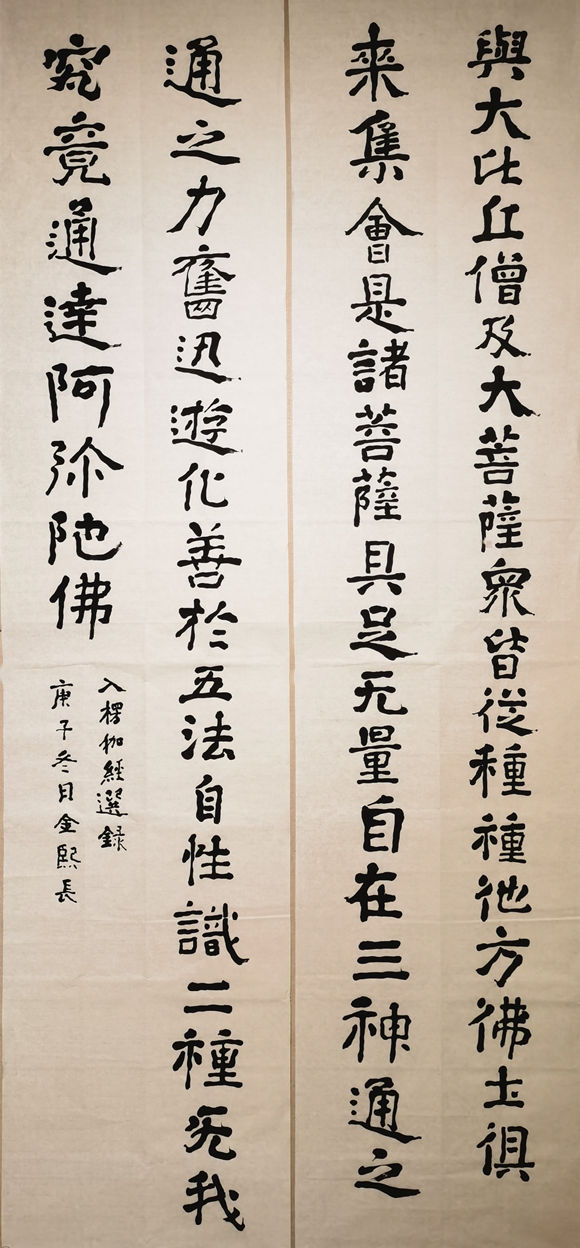 與大比丘僧及大菩薩衆皆從種種彼方佛土俱
来集會是諸菩薩具足无量自在三神通之
通之力奮迅遊化善於五法自性識二種无我
究竟通達阿弥陀佛
入楞伽經選録
庚子冬日金熙長